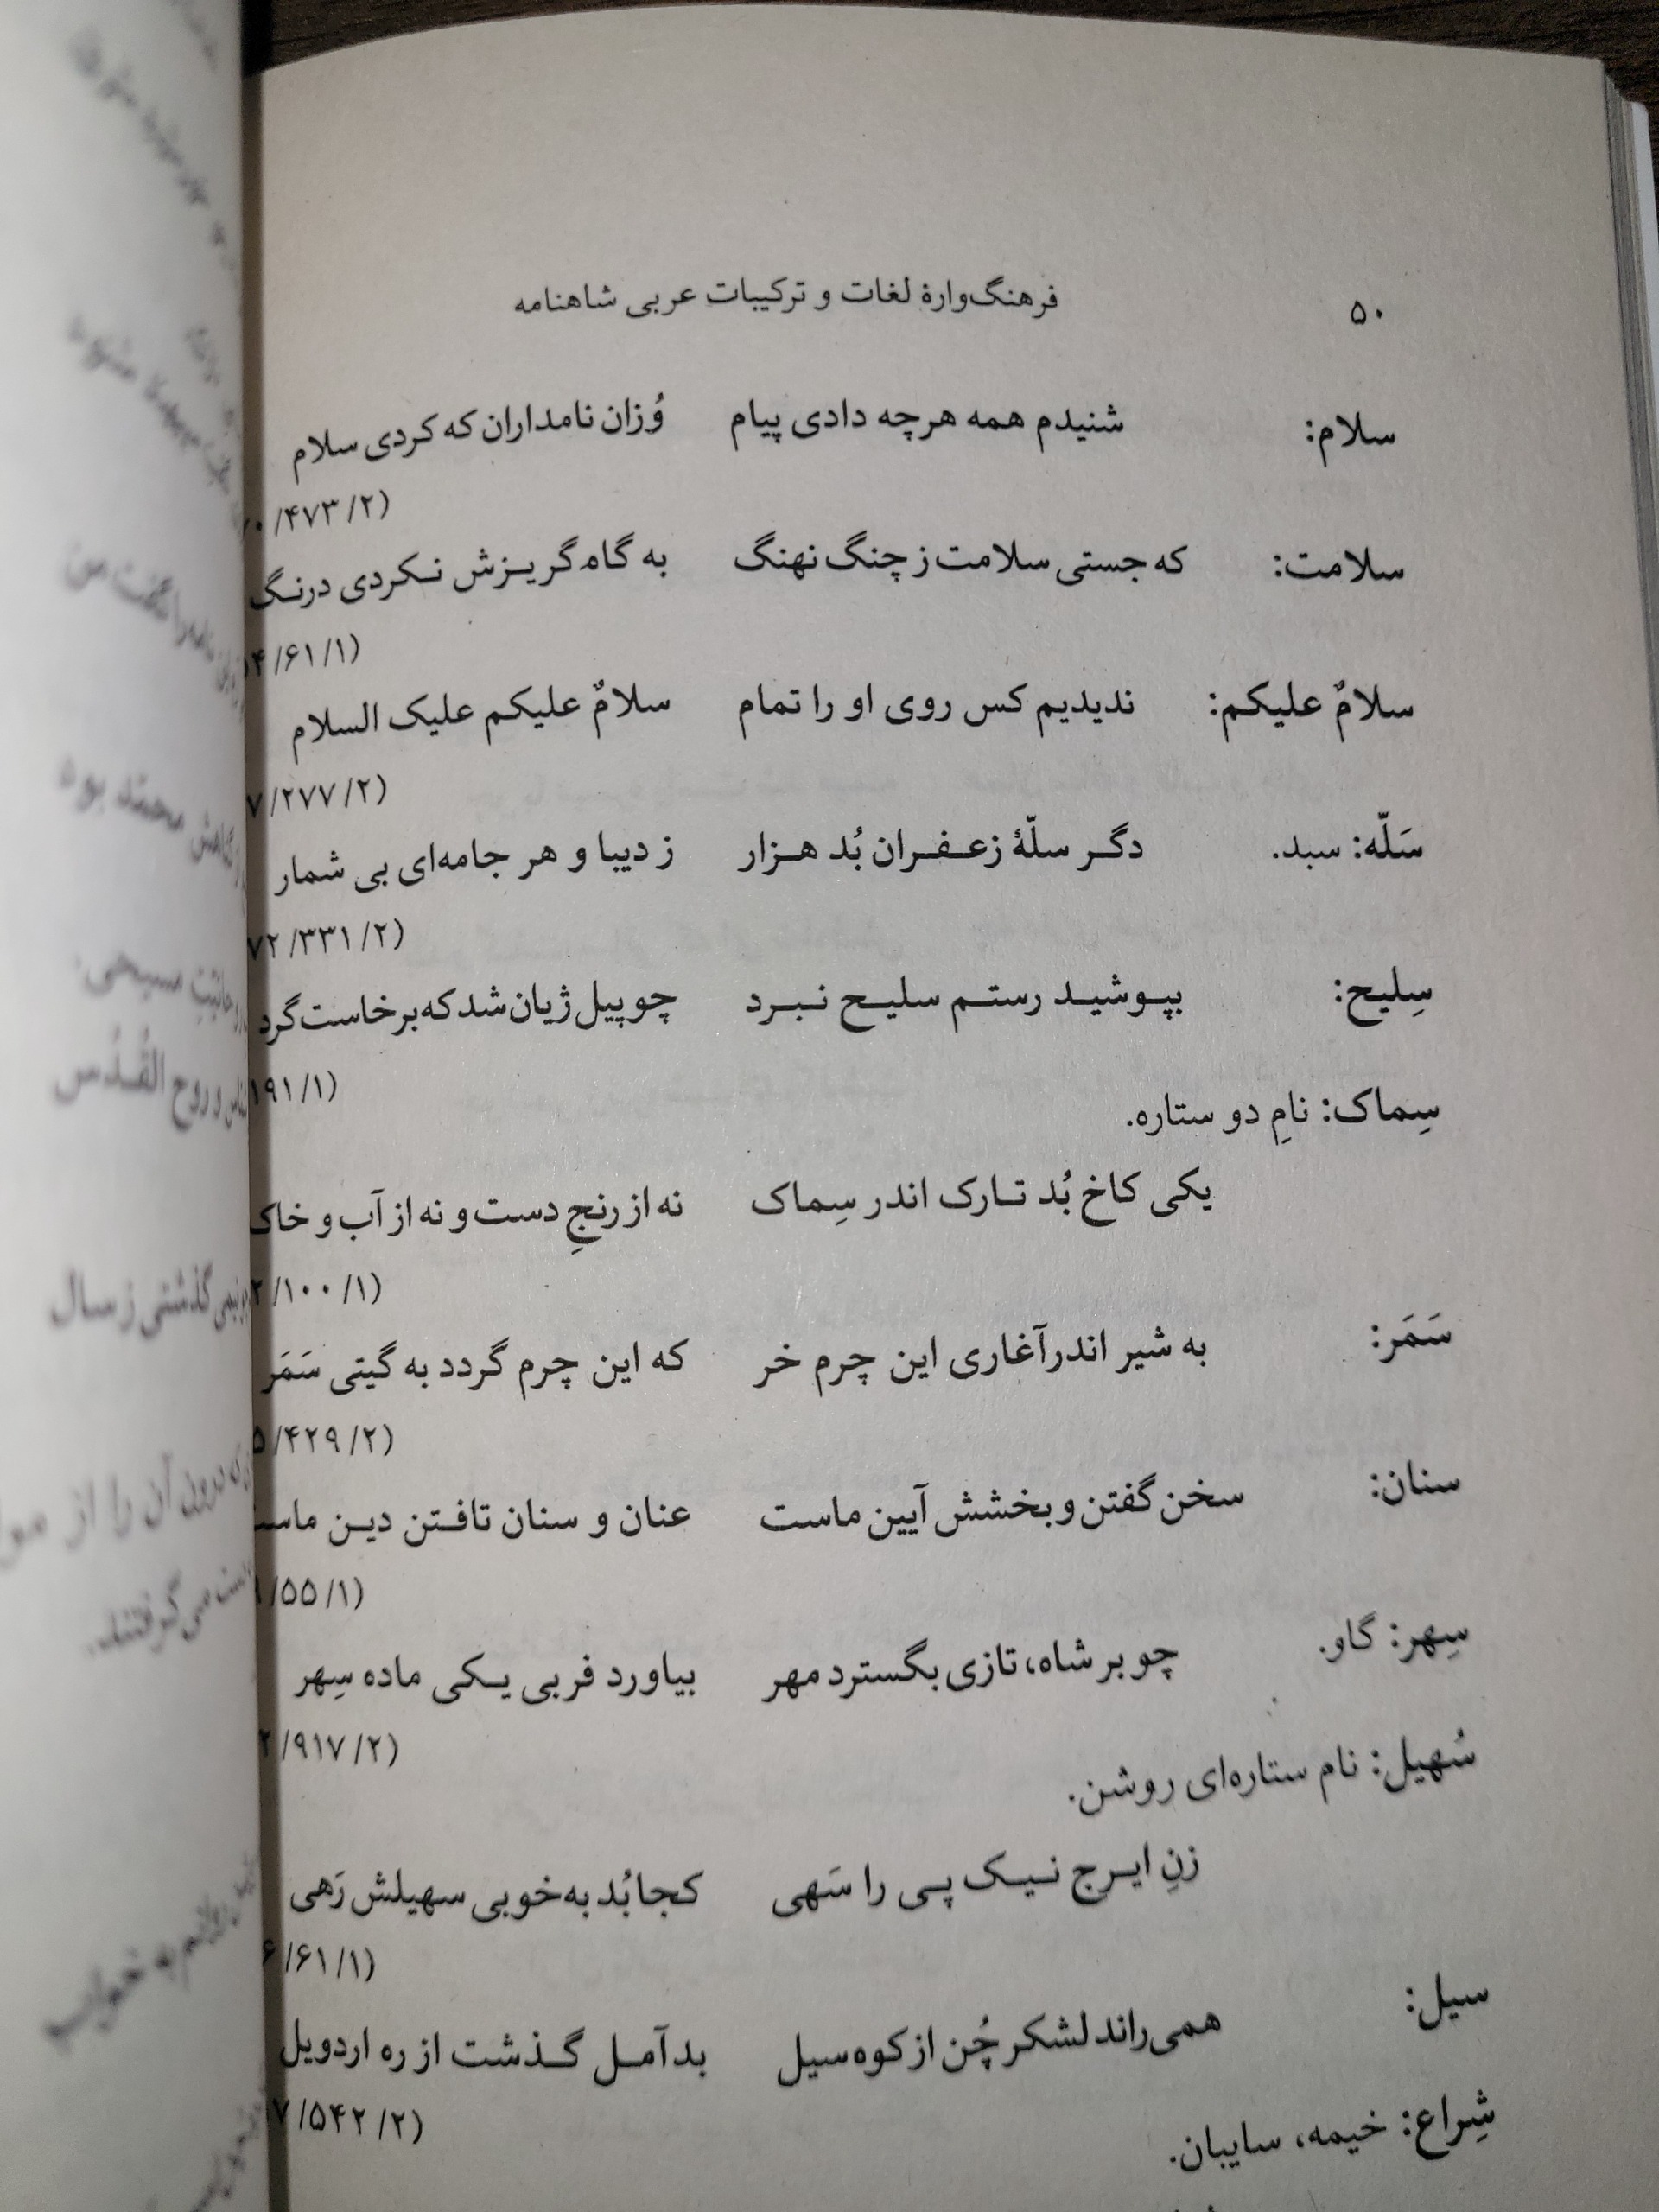 ۵۰ فرهنگ‌وارهٔ لغات و ترکیبات عربی شاهنامه
سلام: شنیدم همه هرچه دادی پیام وُزان نامداران که کردی سلام
(۲/۴۷۳/
سلامت: که جستی سلامت ز چنگ نهنگ به گاه گریزش نکردی درنگ
(۱/۶۱/
سلامٌ علیکم: ندیدیم کس روی او را تمام سلامٌ علیکم علیک السلام
(۲/۲۷۷/
سَلّه: سبد. دگر سلّهٔ زعفران بُد هزار ز دیبا و هر جامه‌ای بی شمار
(۲/۳۳۱/
سِلیح: بپوشید رستم سلیح نبرد چو پیل ژیان شد که برخاست گرد
(۱/۱۹۱
سِماک: نامِ دو ستاره.
یکی کاخ بُد تارک اندر سِماک نه از رنجِ دست و نه از آب و خاک
(۱/۱۰۰/
سَمَر: به شیر اندرآغاری این چرم خر که این چرم گردد به گیتی سَمَر
(۲/۴۲۹/
سنان: سخن گفتن و بخشش آیین ماست عنان و سنان تافتن دین ماست
(۱/۵۵/
سِهر: گاو. چو بر شاه، تازی بگسترد مهر بیاورد فربی یکی ماده سِهر
(۲/۹۱۷/
سُهیل: نام ستاره‌ای روشن.
زنِ ایرج نیک پی را سَهی کجا بُد به خوبی سهیلش رَهی
(۱/۶۱/
سیل: همی‌راند لشکر چُن از کوه سیل بد آمل گذشت از ره اردویل
(۲/۵۴۲/
شِراع: خیمه، سایبان.